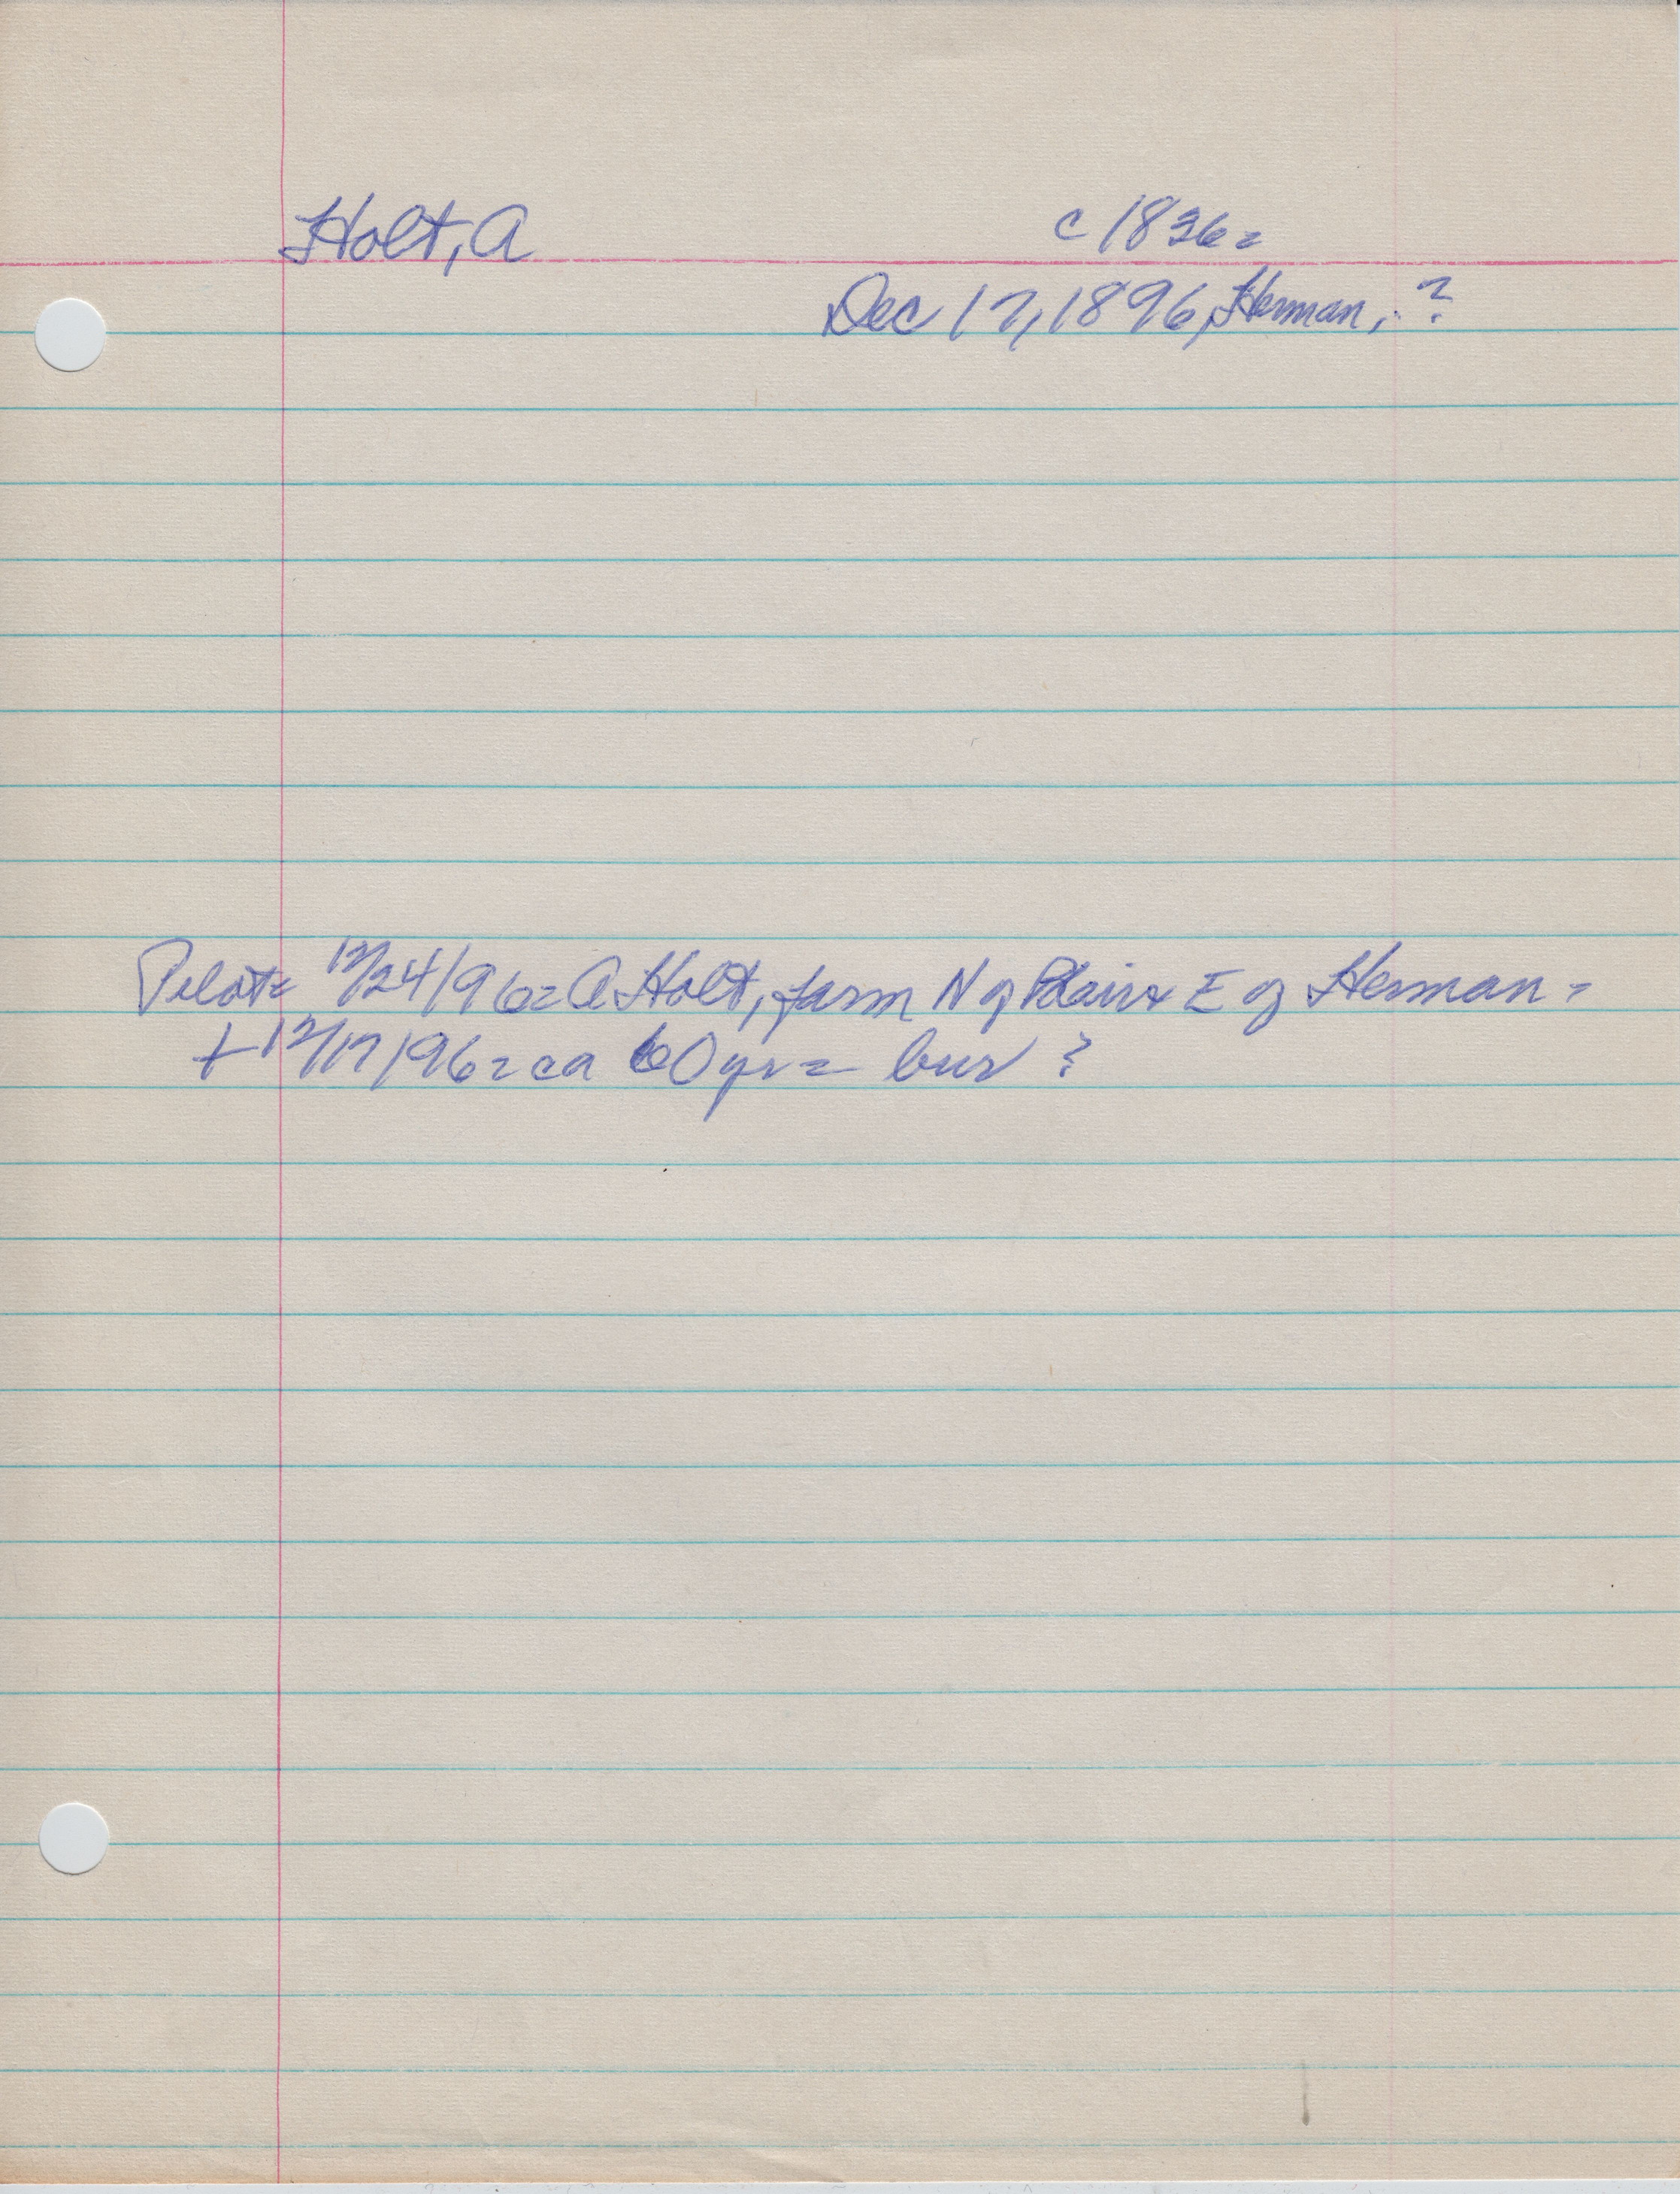 Holt, A
c 1836=
Dec 17, 1896, Herman, ?
Pilot= 12/24/96= A Holt, farm N of Blair & E of Herman =
+ 12/17/96= ca 60 yr = bur ?